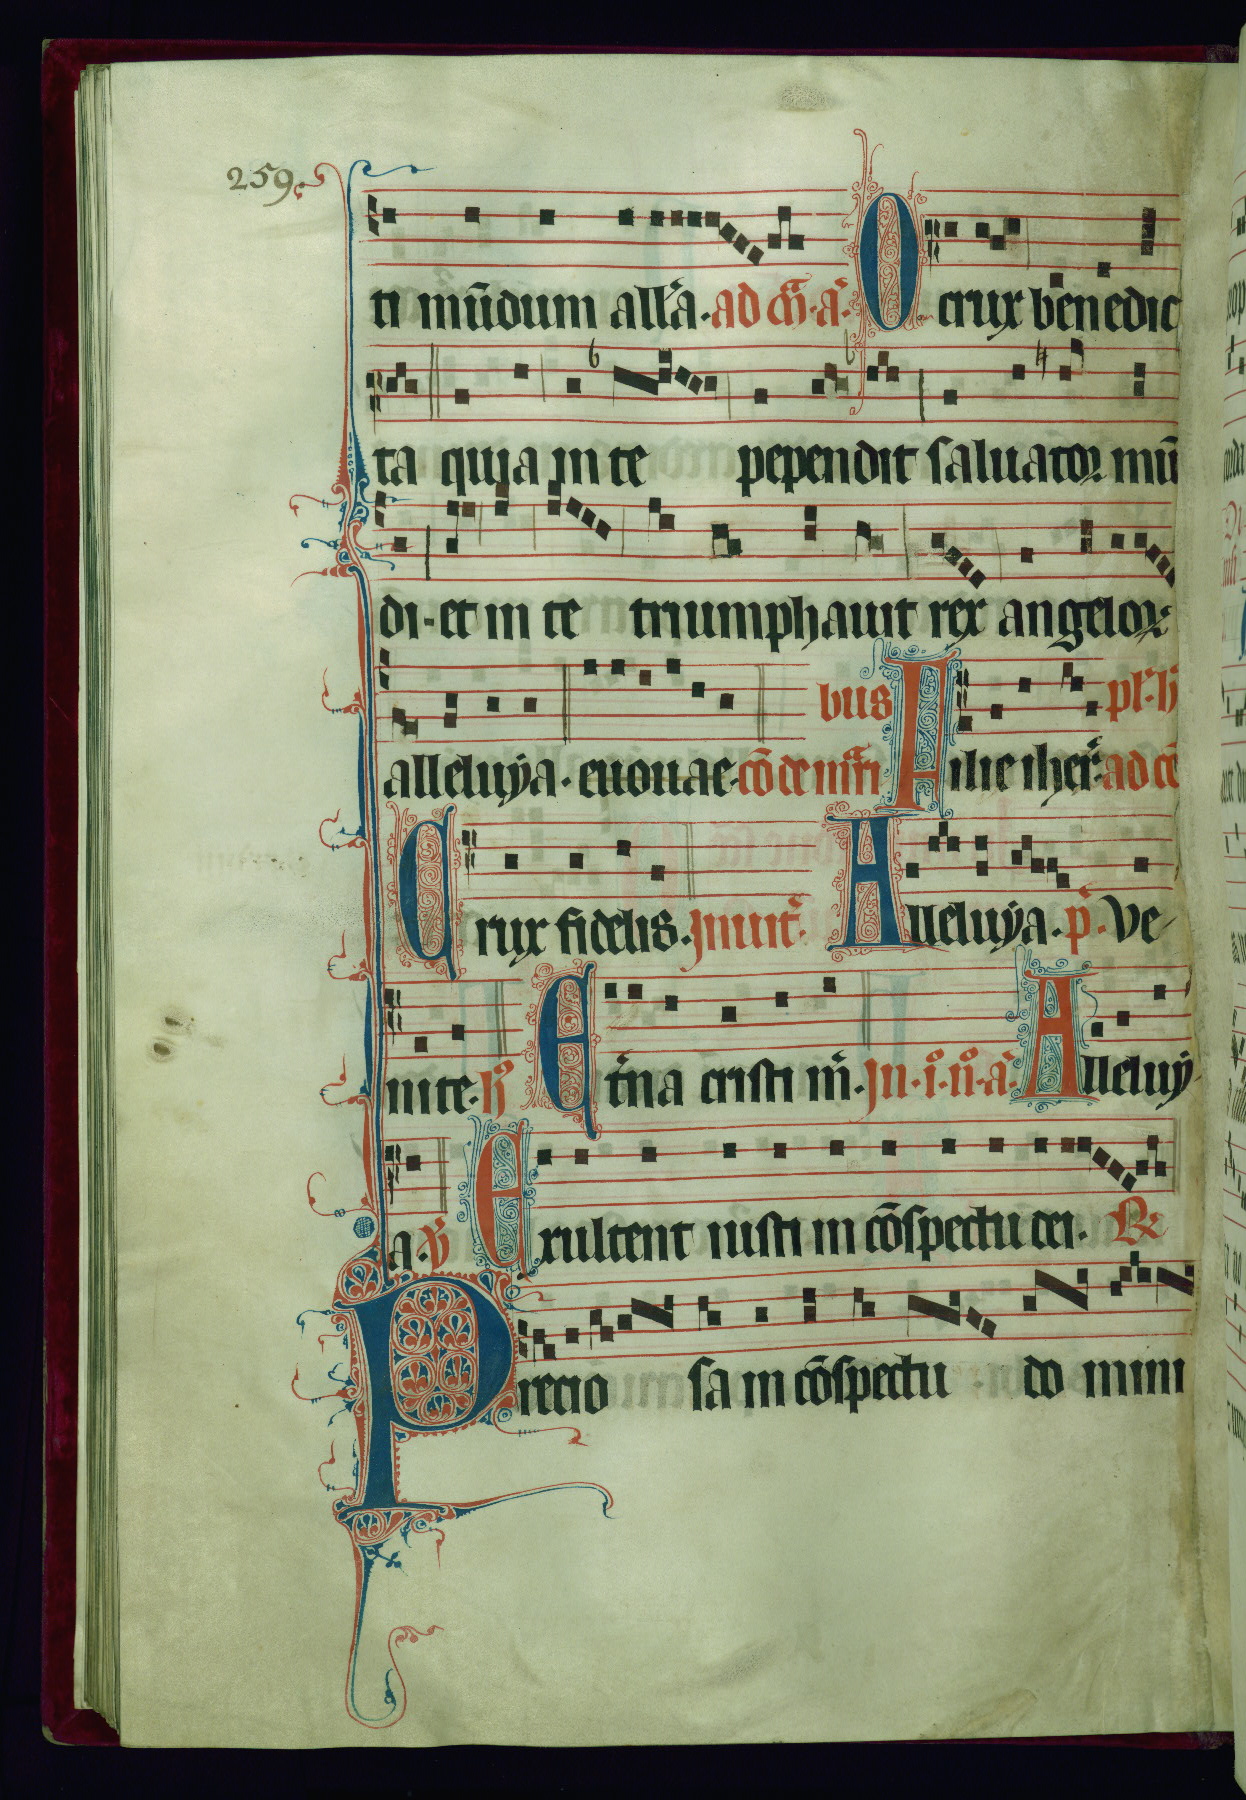 259.
ti mūdum allã. ad cã. ã. O crux benedic
ta quia in te pependit saluator mū
di. et in te triumphauit rex angelor
bus pl'. h
alleluÿa. euouae. cō de mr̃ti Filie iher̃. ad cō
Crux fidelis. Inuit̃. Alleluÿa. p̃. Ve
nite. h̊ Et̃na cristi m̃. In. i̊. n̊. ã. Alleluÿ
a. v̊ Exultent iusti in cōspectu dei. R
Precio sa in cōspectu do mini